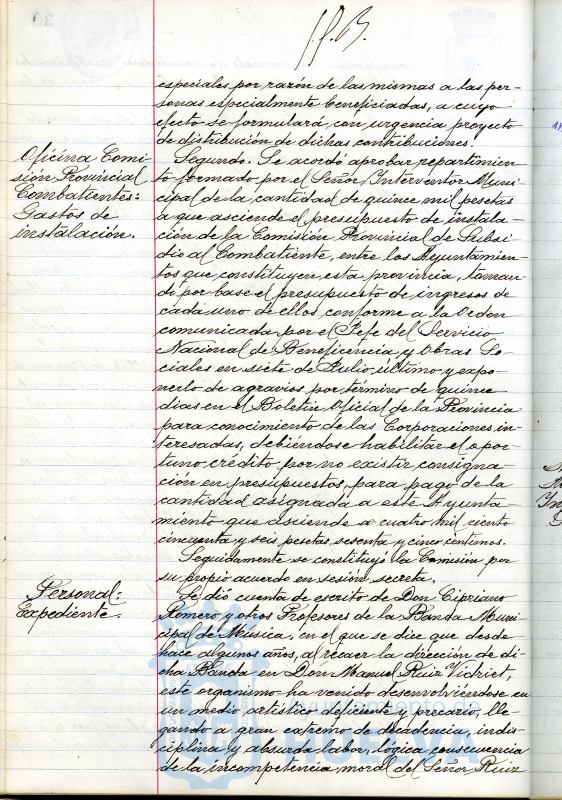 especiales por razón de las mismas a las per-
sonas especialmente beneficiadas, a cuyo
efecto se formulará con urgencia proyecto
de distribución de dichas contribuciones.
Oficina Comi-
sión Provincial
Combatientes:
Gastos de
instalación.
Segundo. Se acordó aprobar repartimien-
to formado por el Señor Interventor Muni-
cipal de la cantidad de quince mil pesetas
a que asciende el presupuesto de instala-
ción de la Comisión Provincial de Subsi-
dio al Combatiente, entre los Ayuntamien-
tos que constituyen esta provincia, toman-
do por base el presupuesto de ingresos de
cada uno de ellos conforme a la Orden
comunicada por el Jefe del Servicio
Nacional de Beneficencia y Obras So-
ciales en siete de Julio último y expo-
nerlo de agravios por término de quince
dias en el Boletín Oficial de la Provincia
para conocimiento de las Corporaciones in-
teresadas, debiéndose habilitar el opor-
tuno crédito, por no existir consigna-
ción en presupuestos, para pago de la
cantidad asignada a este Ayunta-
miento que asciende a cuatro mil ciento
cincuenta y seis pesetas, sesenta y cinco centimos.
Seguidamente se constituyó la Comisión por
su propio acuerdo en sesión secreta.
Personal:
Expediente.
Se dió cuenta de escrito de Don Cipriano
Romero y otros Profesores de la Banda Muni-
cipal de Música, en el que se dice que desde
hace algunos años, al recaer la dirección de di-
cha Banda en Don Manuel Ruiz Vidriet,
este organismo ha venido desenvolviéndose en
un medio artístico deficiente y precario, lle-
gando a gran extremo de decadencia, indis-
ciplina y absurda labor, lógica consecuencia
de la incompetencia moral del Señor Ruiz